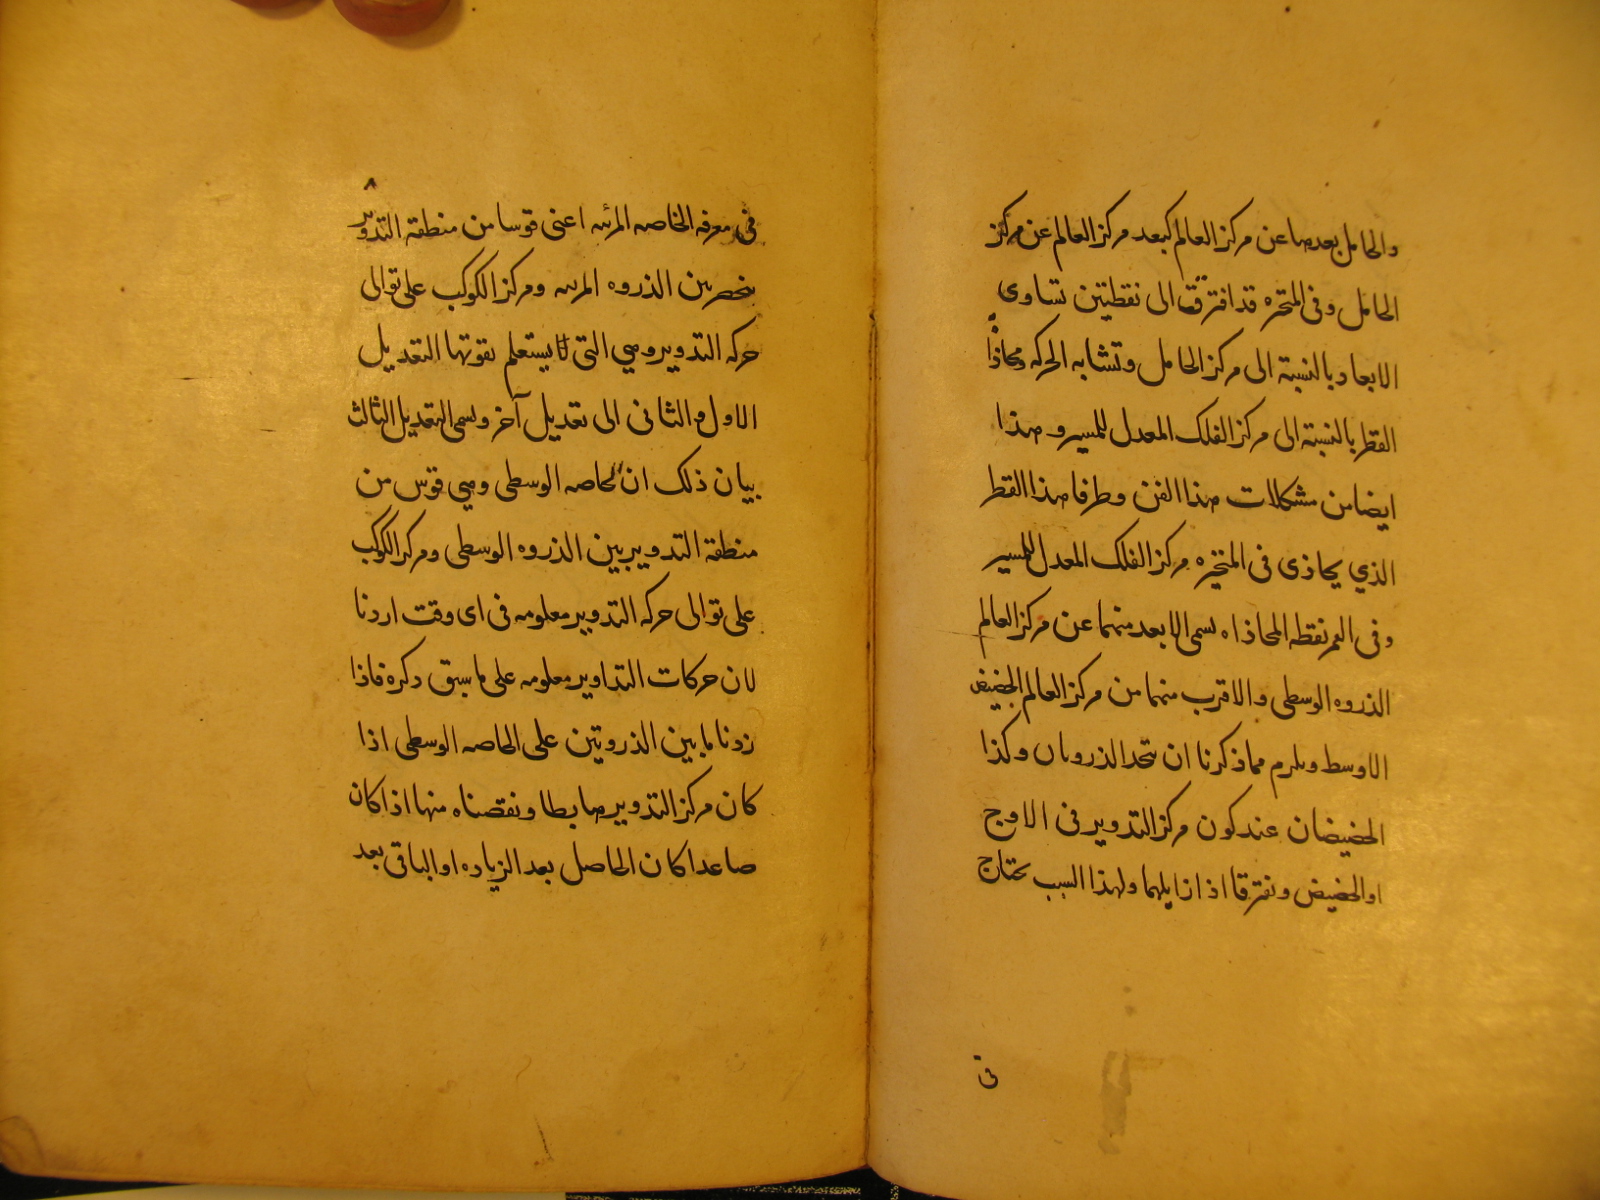 والحامل بعدها عن مركز العالم كبعد مركز العالم عن مركز
الحامل وفى المتحيره قد افترقتا الى نقطتين تساوى
الابعاد بالنسبة الى مركز الحامل وتشابه الحركه ومحاذاة
القطر بالنسبة الى مركز الفلك المعدل للمسير وهذا
ايضا من مشكلات هذا الفن وطرفا هذا القطر
الذي يحاذى فى المتحيره مركز الفلك المعدل للمسير
وفى القمر نقطه المحاذاه يسمى الابعد منهما عن مركز العالم
الذروه الوسطى والاقرب منهما من مركز العالم الحضيض
الاوسط ويلزم مما ذكرنا ان تتحد الذروتان وكذا
الحضيضان عند كون مركز التدوير فى الاوج
او الحضيض وتفترقا اذا زايلهما ولهذا السبب نحتاج
فى
٨
فى معرفه الخاصه المرئيه اعنى قوسا من منطقة التدوير
تنحصر بين الذروه المرئيه ومركز الكوكب على توالى
حركه التدوير وهي التى لا يستعلم بقوتها التعديل
الاول والثانى الى تعديل آخر ويسمى التعديل الثالث
بيان ذلك ان الخاصه الوسطى وهي قوس من
منطقة التدوير بين الذروه الوسطى ومركز الكوكب
على توالى حركه التدوير معلومه فى اى وقت اردنا
لان حركات التداوير معلومه على ما سبق ذكره فاذا
زدنا ما بين الذروتين على الخاصه الوسطى اذا
كان مركز التدوير هابطا ونقصناه منها اذا كان
صاعدا كان الحاصل بعد الزياده او الباقى بعد